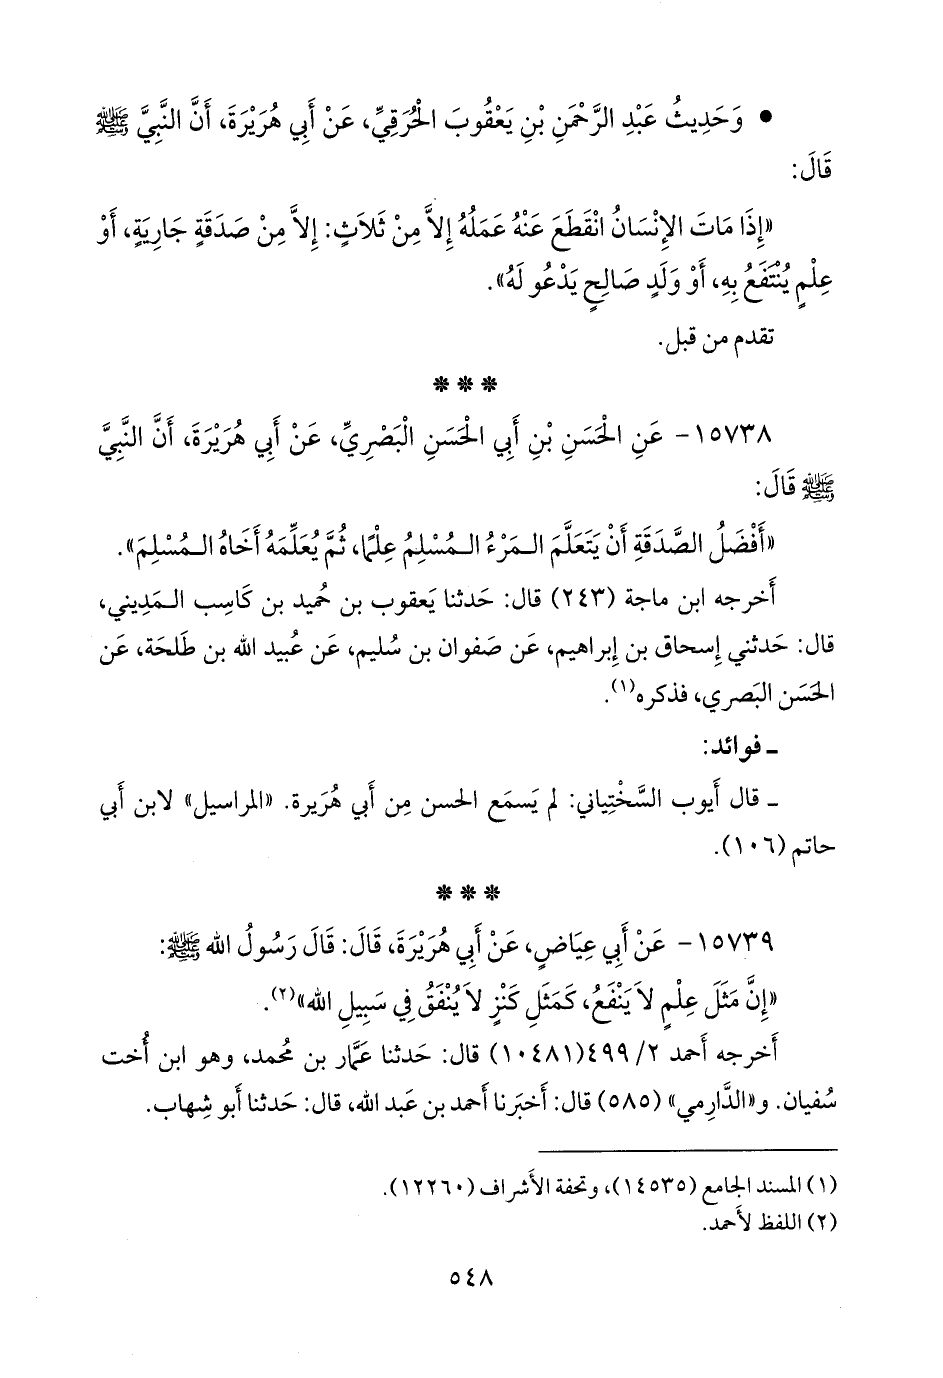 • وَحَدِيثُ عَبْدِ الرَّحْمَنِ بْنِ يَعْقُوبَ الْحُرَقِيِّ، عَنْ أَبِي هُرَيْرَةَ، أَنَّ النَّبِيَّ ﷺ
قَالَ:
«إِذَا مَاتَ الإِنْسَانُ انْقَطَعَ عَنْهُ عَمَلُهُ إِلاَّ مِنْ ثَلاَثٍ: إِلاَّ مِنْ صَدَقَةٍ جَارِيَةٍ، أَوْ
عِلْمٍ يُنْتَفَعُ بِهِ، أَوْ وَلَدٍ صَالِحٍ يَدْعُو لَهُ».
تقدم من قبل.
* * *
١٥٧٣٨- عَنِ الْحَسَنِ بْنِ أَبِي الْحَسَنِ الْبَصْرِيِّ، عَنْ أَبِي هُرَيْرَةَ، أَنَّ النَّبِيَّ
ﷺ قَالَ:
«أَفْضَلُ الصَّدَقَةِ أَنْ يَتَعَلَّمَ الـمَرْءُ الـمُسْلِمُ عِلْمًا، ثُمَّ يُعَلِّمَهُ أَخَاهُ الـمُسْلِمَ».
أَخرجه ابن ماجة (٢٤٣) قال: حَدثنا يَعقوب بن حُميد بن كَاسِب الـمَديني،
قال: حَدثني إِسحاق بن إِبراهيم، عَن صَفوان بن سُليم، عَن عُبيد الله بن طَلحَة، عَن
الحَسَن البَصري، فذكره(١).
ـ فوائد:
ـ قال أَيوب السَّخْتِياني: لم يَسمَع الحسن مِن أَبي هُرَيرة. «المراسيل» لابن أَبي
حاتم (١٠٦).
* * *
١٥٧٣٩- عَنْ أَبِي عِيَاضٍ، عَنْ أَبِي هُرَيْرَةَ، قَالَ: قَالَ رَسُولُ الله ﷺ:
«إِنَّ مَثَلَ عِلْمٍ لاَ يَنْفَعُ، كَمَثَلِ كَنْزٍ لاَ يُنْفَقُ فِي سَبِيلِ الله»(٢).
أَخرجه أَحمد ٢/ ٤٩٩(١٠٤٨١) قال: حَدثنا عَمَّار بن مُحمد، وهو ابن أُخت
سُفيان. و«الدَّارِمي» (٥٨٥) قال: أَخبَرنا أَحمد بن عَبد الله، قال: حَدثنا أَبو شِهاب.
(١) المسند الجامع (١٤٥٣٥)، وتحفة الأَشراف (١٢٢٦٠).
(٢) اللفظ لأَحمد.
٥٤٨